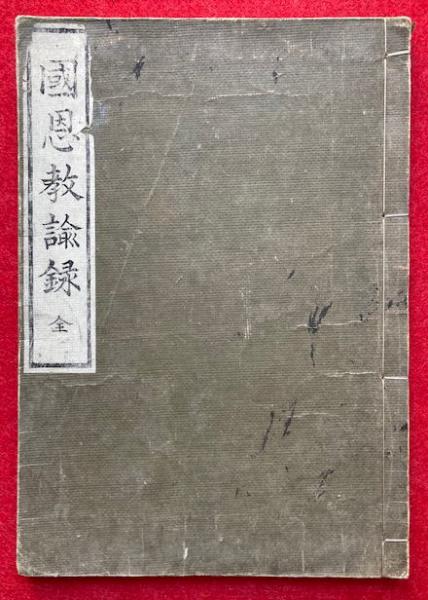 國恩教諭録 全